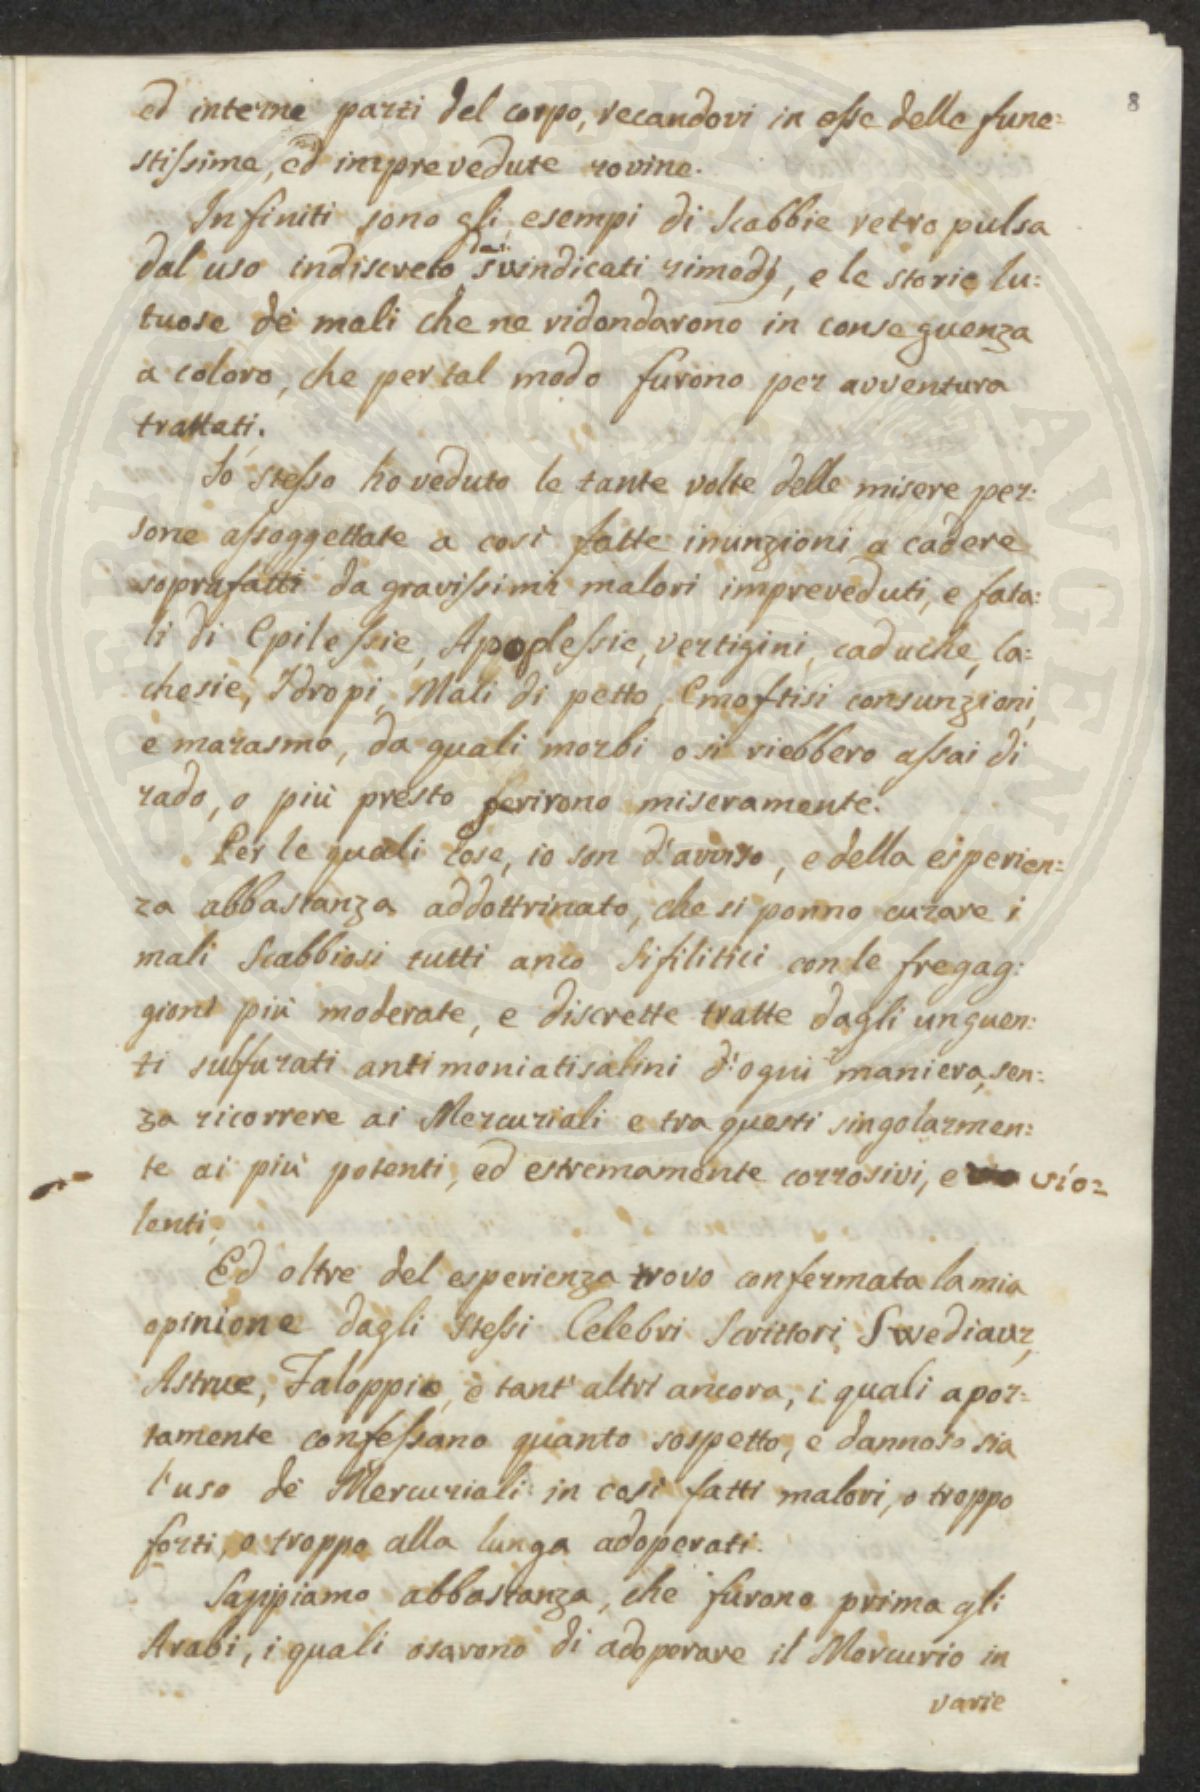 8
ed interne parti del corpo, recandovi in esse delle fune=
stissime, ed imprevedute rovine.
Infiniti sono gli esempi di Scabbie retro pulsa
dal uso indiscreto dei svindicati rimedj, e le storie lu=
tuose dè mali che ne ridondarono in conseguenza
a coloro, che per tal modo furono per avventura
trattati.
Io stesso ho veduto le tante volte delle misere per=
sone assoggettate a così fatte inunzioni a cadere
soprafatti da gravissimi malori impreveduti, e fata=
li di Epilessie, Apoplessie, vertigini, caduche, ca=
chesie, Idropi, Mali di petto, Emoftisi consunzioni,
e marasmo, da quali morbi o si riebbero assai di
rado, o più presto perirono miseramente.
Per le quali cose, io son d'avviso, e della esperien=
za abbastanza addottrinato, che si ponno curare i
mali Scabbiosi tutti anco Sifilitici con le fregag=
gioni più moderate, e discrette tratte dagli unguen=
ti sulfurati antimoniati salini d'ogni maniera, sen=
za ricorrere ai Mercuriali e tra questi singolarmen=
te ai più potenti, ed estremamente corrosivi, e vio=
lenti.
Ed oltre del esperienza trovo confermata la mia
opinione dagli stessi Celebri Scrittori Swediaur,
Astruc, Faloppio, e tant'altri ancora, i quali aper=
tamente confessano quanto sospetto, e dannoso sia
l'uso dè Mercuriali in così fatti malori, o troppo
forti, o troppo alla lunga adoperati.
Sappiamo abbastanza, che furono prima gli
Arabi, i quali osarono di adoperare il Mercurio in
varie